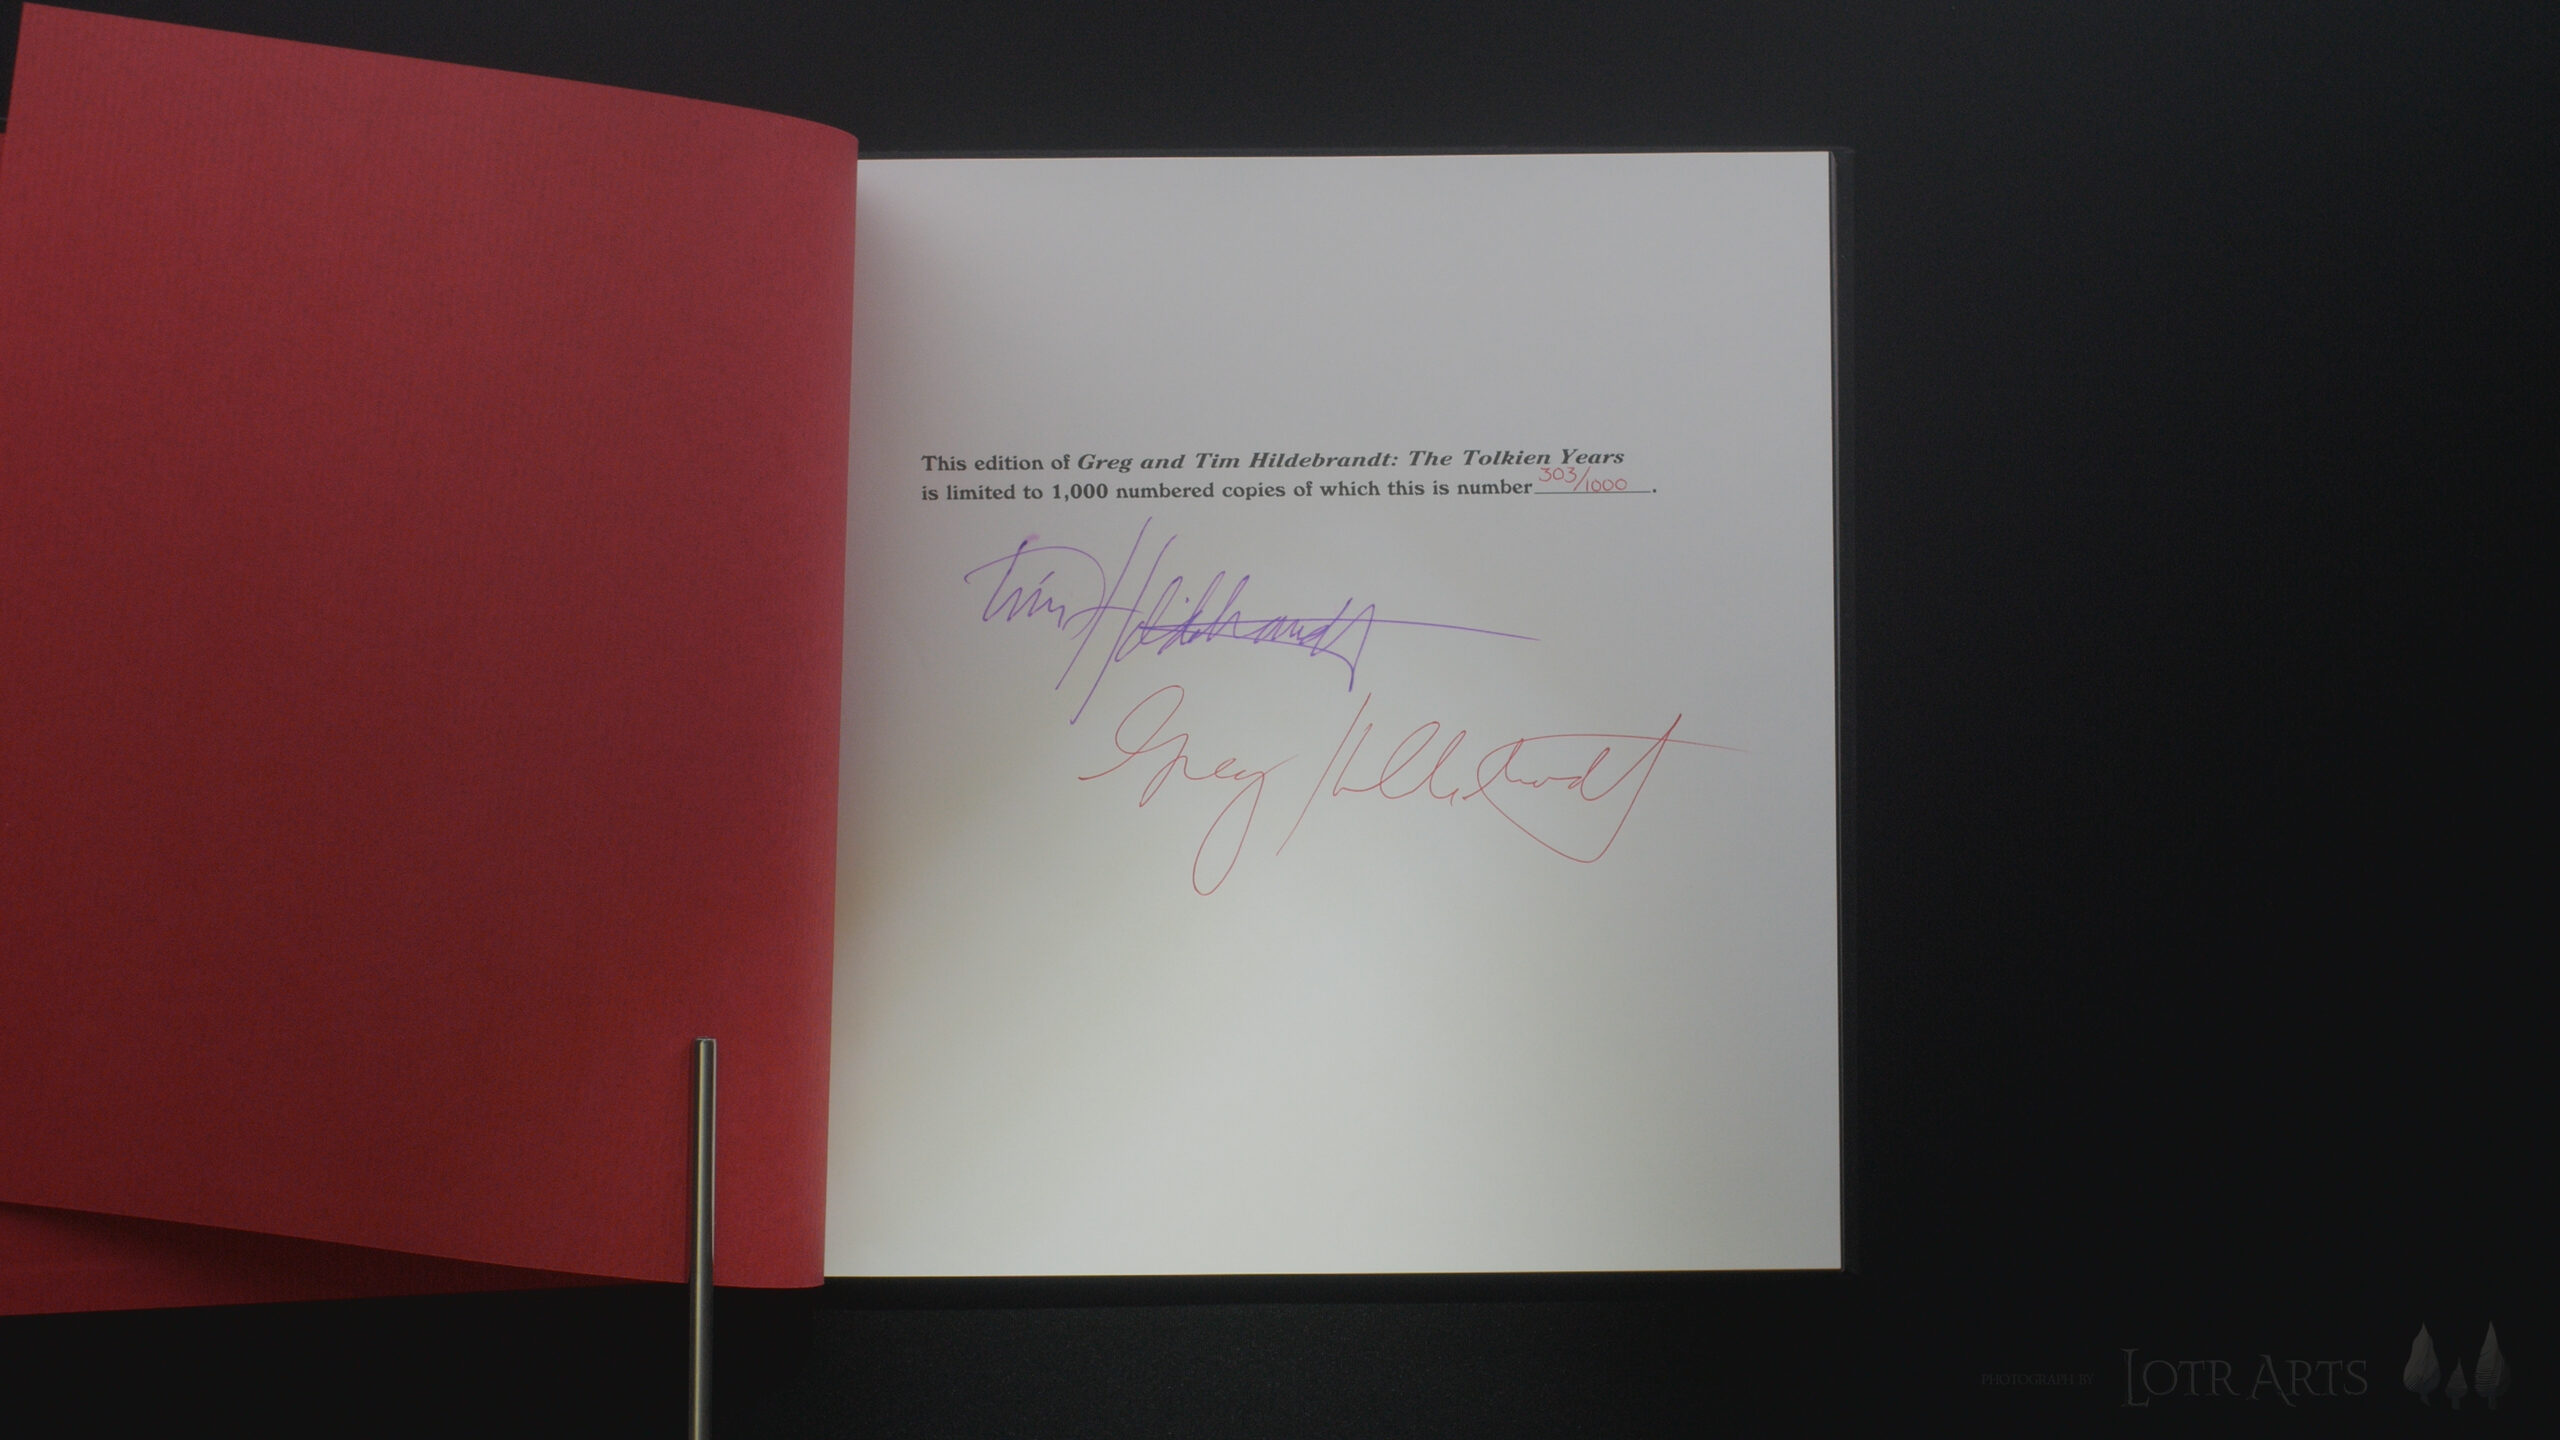 This edition of Greg and Tim Hildebrandt: The Tolkien Years
is limited to 1,000 numbered copies of which this is number 303/1000.
Tim Hildebrandt
Greg Hildebrandt
PHOTOGRAPH BY LOTR ARTS